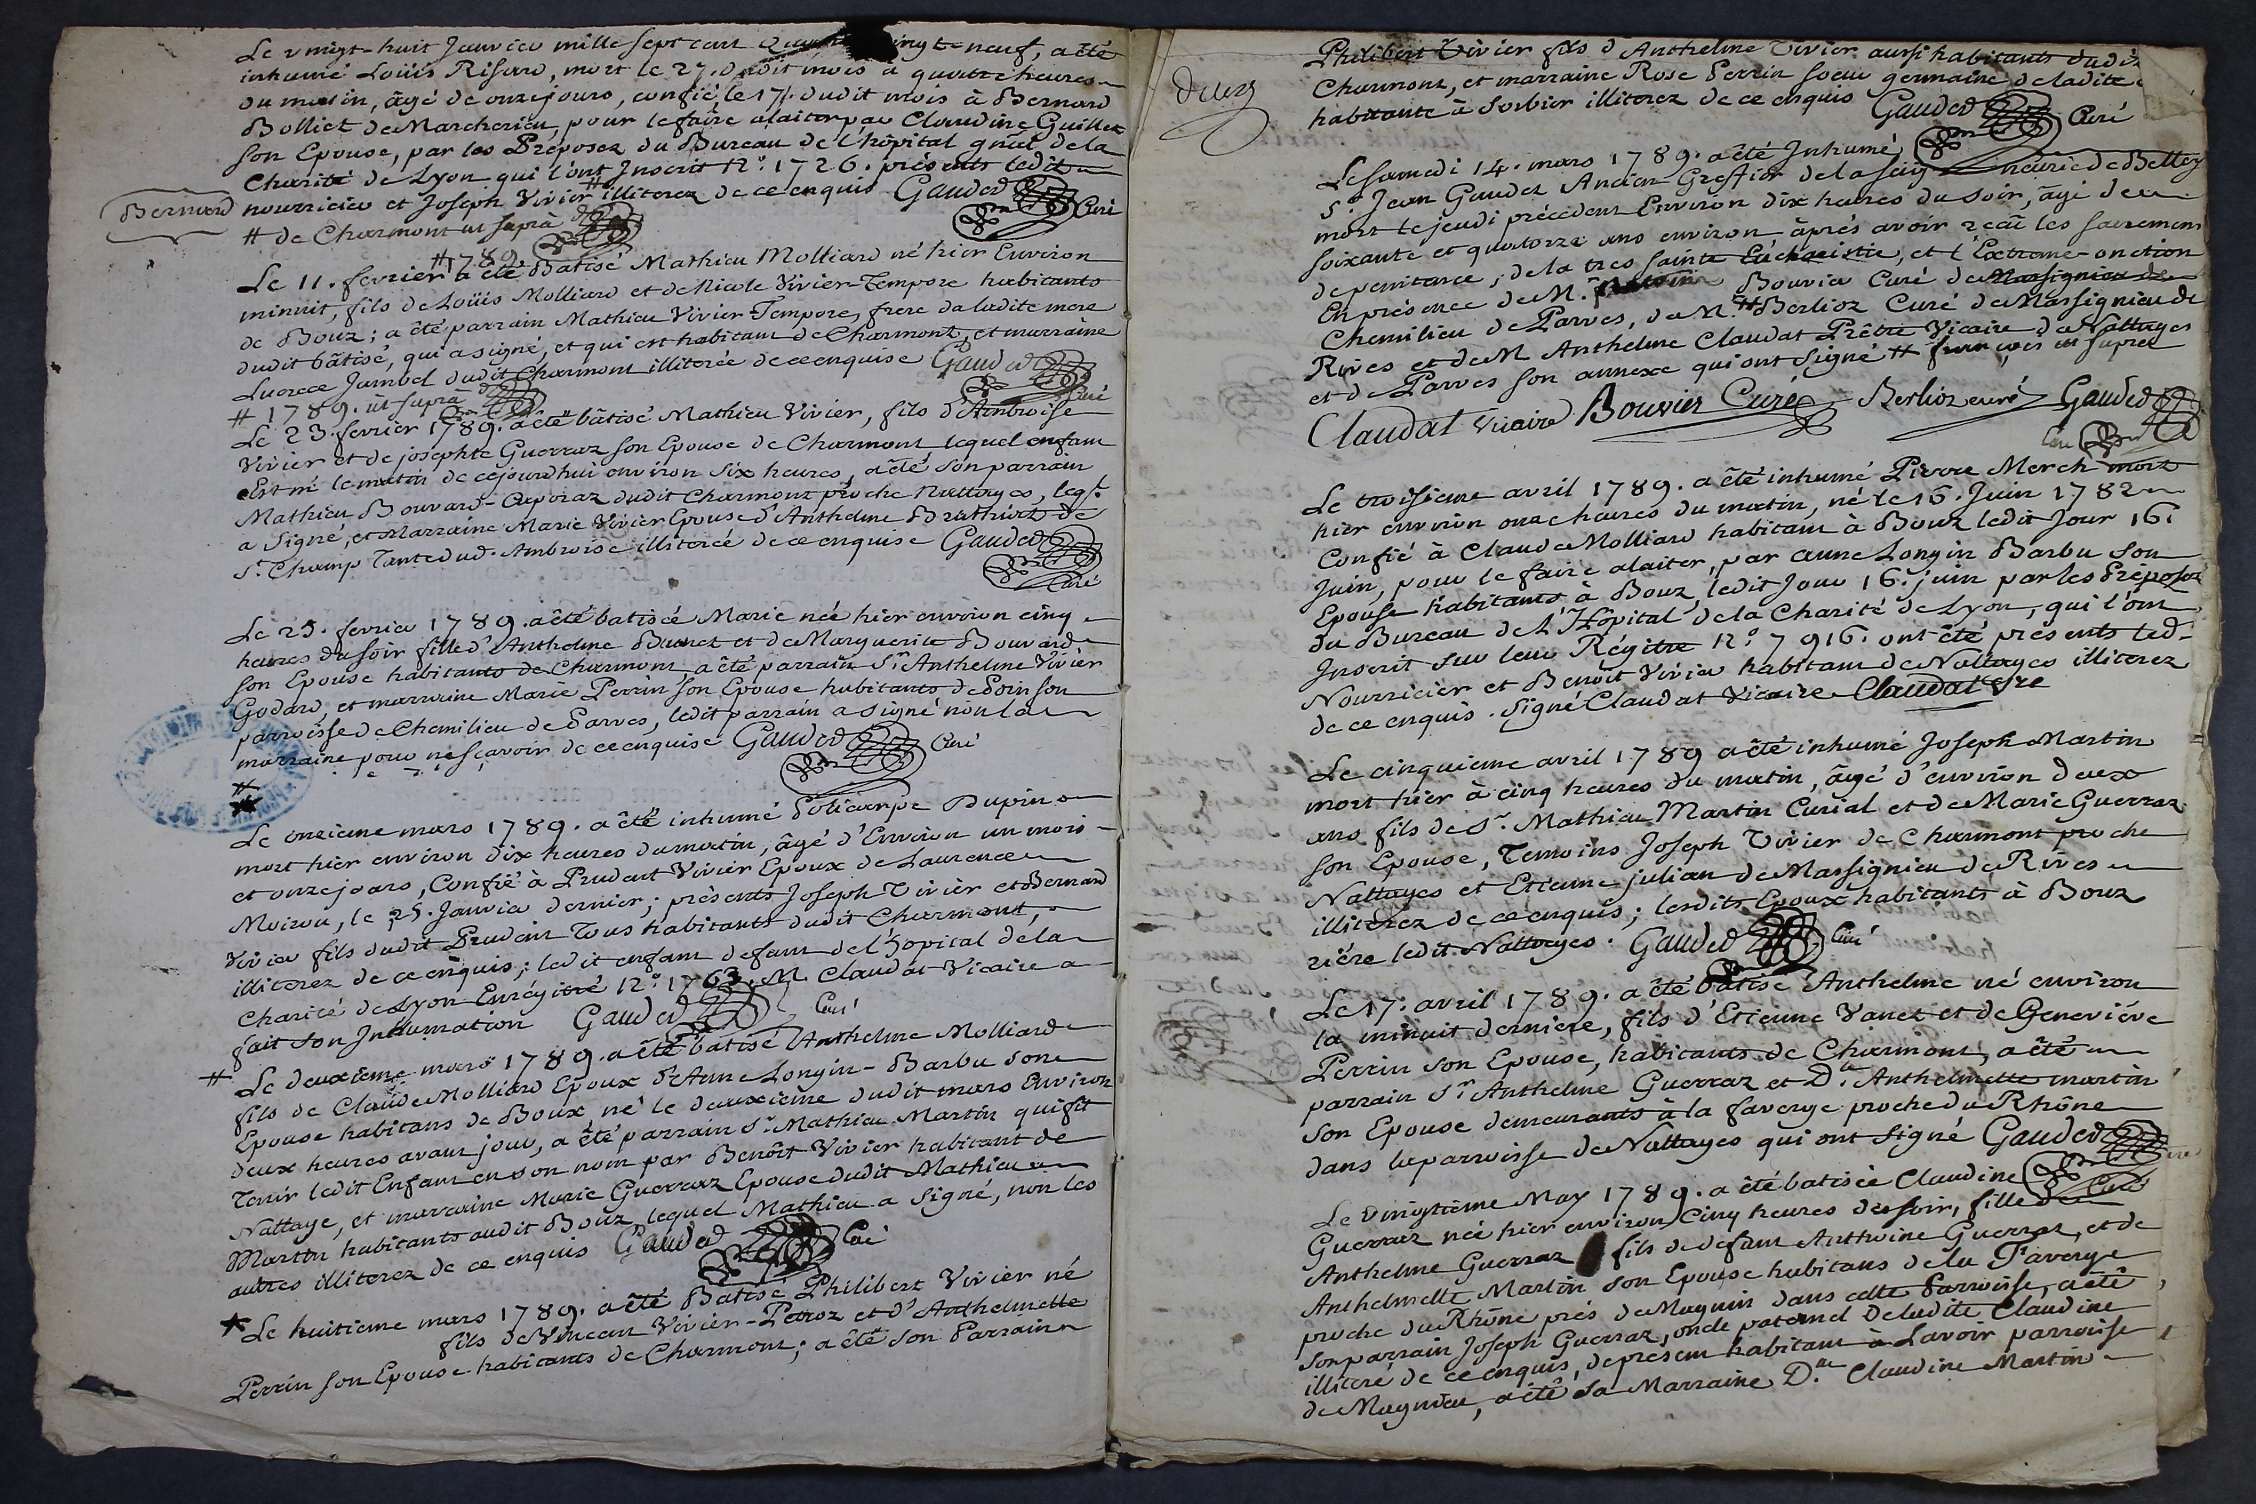 Le vingt-huit Janvier mille sept cent vingt-neuf, a été
inhumé Loüis Risard, mort le 27. dudit mois à quatre heures
du matin, âgé de onze jours, confié le 17. dudit mois à Bernard
Bolliet de Marcherieu, pour le faire alaiter par Claudine Guillet
son Epouse, par les Préposez du Bureau de l'hôpital gñal de la
Charité de Lyon qui l'ont Inscrit N.º 1726. présents ledit
nourricier et Joseph Vivier # illiterez de ce enquis Gauded Curé
Bernard
# de Charmont ut suprà
# 1789.
Le 11. fevrier a été Batisé Mathieu Molliard né hier Environ
minuit, fils de Loüis Molliard et de Nicole Vivier-Tempore habitants
de Bouz; a été parrain Mathieu Vivier-Tempore, frere da ladite mere
dudit bâtisé, qui a signé, et qui est habitant de Charmont, et marraine
Lucrece Jambel dudit Charmont illiterée de ce enquise Gauded Curé
# 1789. ut suprà
Le 23. fevrier 1789. a été bâtisé Mathieu Vivier, fils d'Ambroise
Vivier et de josephte Guerraz son Epouse de Charmont lequel enfant
Est né le matin de cejourdhui environ six heures, a été son parrain
Mathieu Bouvard-Caporaz dudit Charmont proche Nattages, leq.l
a Signé, et Marraine Marie Vivier Epouse d'Anthelme Brathier de
S.t Champ Tante dud. Ambroise illiterée de ce enquise Gauded
Curé
Le 25. fevrier 1789. a été batisée Marie née hier environ cinq
heures du soir fille d'Anthelme Bunet et de Marguerite Bouvard
son Epouse habitants de Charmont, a été parrain S.r Anthelme Vivier
Godard, et marraine Marie Perrin son Epouse habitants de Poinson
parroisse de Chemilieu de Parves, ledit parrain a signé non la
marraine pour ne sçavoir de ce enquise Gauded Curé
#
★
Le onzieme mars 1789. a été inhumé Policarpe Dupin
mort hier environ dix heures du matin, âgé d'Environ un mois
et onze jours, Confié à Prudent Vivier Epoux de Laurence
Moirou, le 25. Janvier dernier; présents Joseph Vivier et Bernard
Vivier fils dudit Prudent Tous habitants dudit Charmont,
illiterez de ce enquis; ledit enfant defunt de l'hopital de la
Charité de Lyon Enrégitré N.º 1763. M. Claudat Vicaire a
fait son Inhumation Gauded Curé
# Le deuxième mars 1789. a été batisé Anthelme Molliard
fils de Claude Molliard Epoux d'Anne Longin-Barbu son
Epouse habitans de Boux, né le deuxieme dudit mars Environ
deux heures avant jour, a été parrain S.r Mathieu Martin qui fit
Tenir ledit Enfant en son nom par Benôit Vivier habitant de
Nattage, et marraine Marie Guerraz Epouse dudit Mathieu
Martin habitants audit Bouz, lequel Mathieu a signé, non les
autres illiterez de ce enquis Gauded Curé
★ Le huitieme mars 1789. a été Batisé Philibert Vivier né
fils de Vincent Vivier-Petroz et d'Anthelmette
Perrin son Epouse habitants de Charmont; a été son Parrain
deux
Philibert Vivier fils d'Anthelme Vivier aussi habitants dudit
Charmont, et marraine Rose Perrin soeur germaine de ladite
habitante à Sorbier illiterez de ce enquis Gauded Curé
Le samedi 14. mars 1789. a été Inhumé
S.r Jean Gaudez Ancien Greffier de la seigneurie de Belley
mort le jeudi précédent Environ dix heures du soir, âgé de
soixante et quatorze ans environ àprès avoir recû les sacremens
de penitance, de la tres sainte Eucharistie, et l'Extreme-onction
En présence de M. Bouvier Curé de Massignieu de
Chemilieu de Parves, de M. # Berlioz Curé de Massignieu de
Rives et de M Anthelme Claudat Prêtre Vicaire de Nattages
et de Parves son annexe qui ont signé # françois ut supra
Claudat Vicaire Bouvier Curé Berlioz curé Gauded
Curé
Le troisieme avril 1789. a été inhumé Pierre Merch mort
hier environ onze heures du matin, né le 16. Juin 1782
Confié à Claude Molliard habitant à Bouz ledit Jour 16.
Juin, pour le faire alaiter, par anne Longin Barbu son
Epouse habitants à Bouz, ledit Jour 16. juin par les Préposez
du Bureau de L'Hôpital de la Charité de Lyon, qui l'ont
Inscrit sur leur Régitre N.º 7916. ont été présents led.
Nourricier et Benôit Vivier habitant de Nattages illiterez
de ce enquis. Signé Claudat Vicaire Claudat Vre
Le cinquieme avril 1789 a été inhumé Joseph Martin
mort hier à cinq heures du matin, âgé d'environ deux
ans fils de S.r Mathieu Martin Curial et de Marie Guerraz
son Epouse, Temoins Joseph Vivier de Charmont proche
Nattages et Etienne julian de Massignieu de Rives
illiterez de ce enquis; lesdits Epoux habitants à Bouz
riére ledit Nattages. Gauded Curé
Le 17. avril 1789. a été batisé Anthelme né environ
la minuit derniere, fils d'Etienne Vanet et de Geneviéve
Perrin son Epouse, habitants de Charmont, a été
parrain S.r Anthelme Guerraz et D.lle Anthelmette martin
son Epouse demeurants à la faverge proche du Rhône
dans la parroisse de Nattages qui ont signé Gauded
Curé
Le vingtième May 1789. a été batisée Claudine
Guerraz née hier environ Cinq heures du soir, fille de
Anthelme Guerraz fils de defunt Anthoine Guerraz, et de
Anthelmette Martin son Epouse habitans de la Faverge
proche du Rhône prés de Magnin dans cette Parroisse, a été
son parrain Joseph Guerraz, oncle paternel de ladite Claudine
illiteré de ce enquis, de présent habitant à Lavoir parroisse
de Magnieu, a été sa Marraine D.lle Claudine Martin